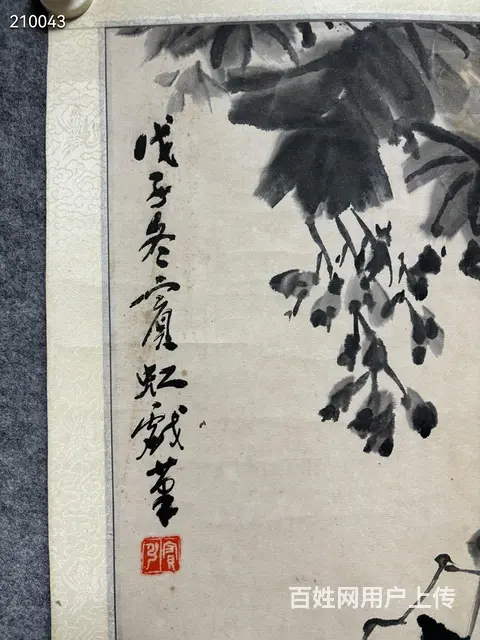 210043
戊子冬賓虹戲筆
百姓网用户上传